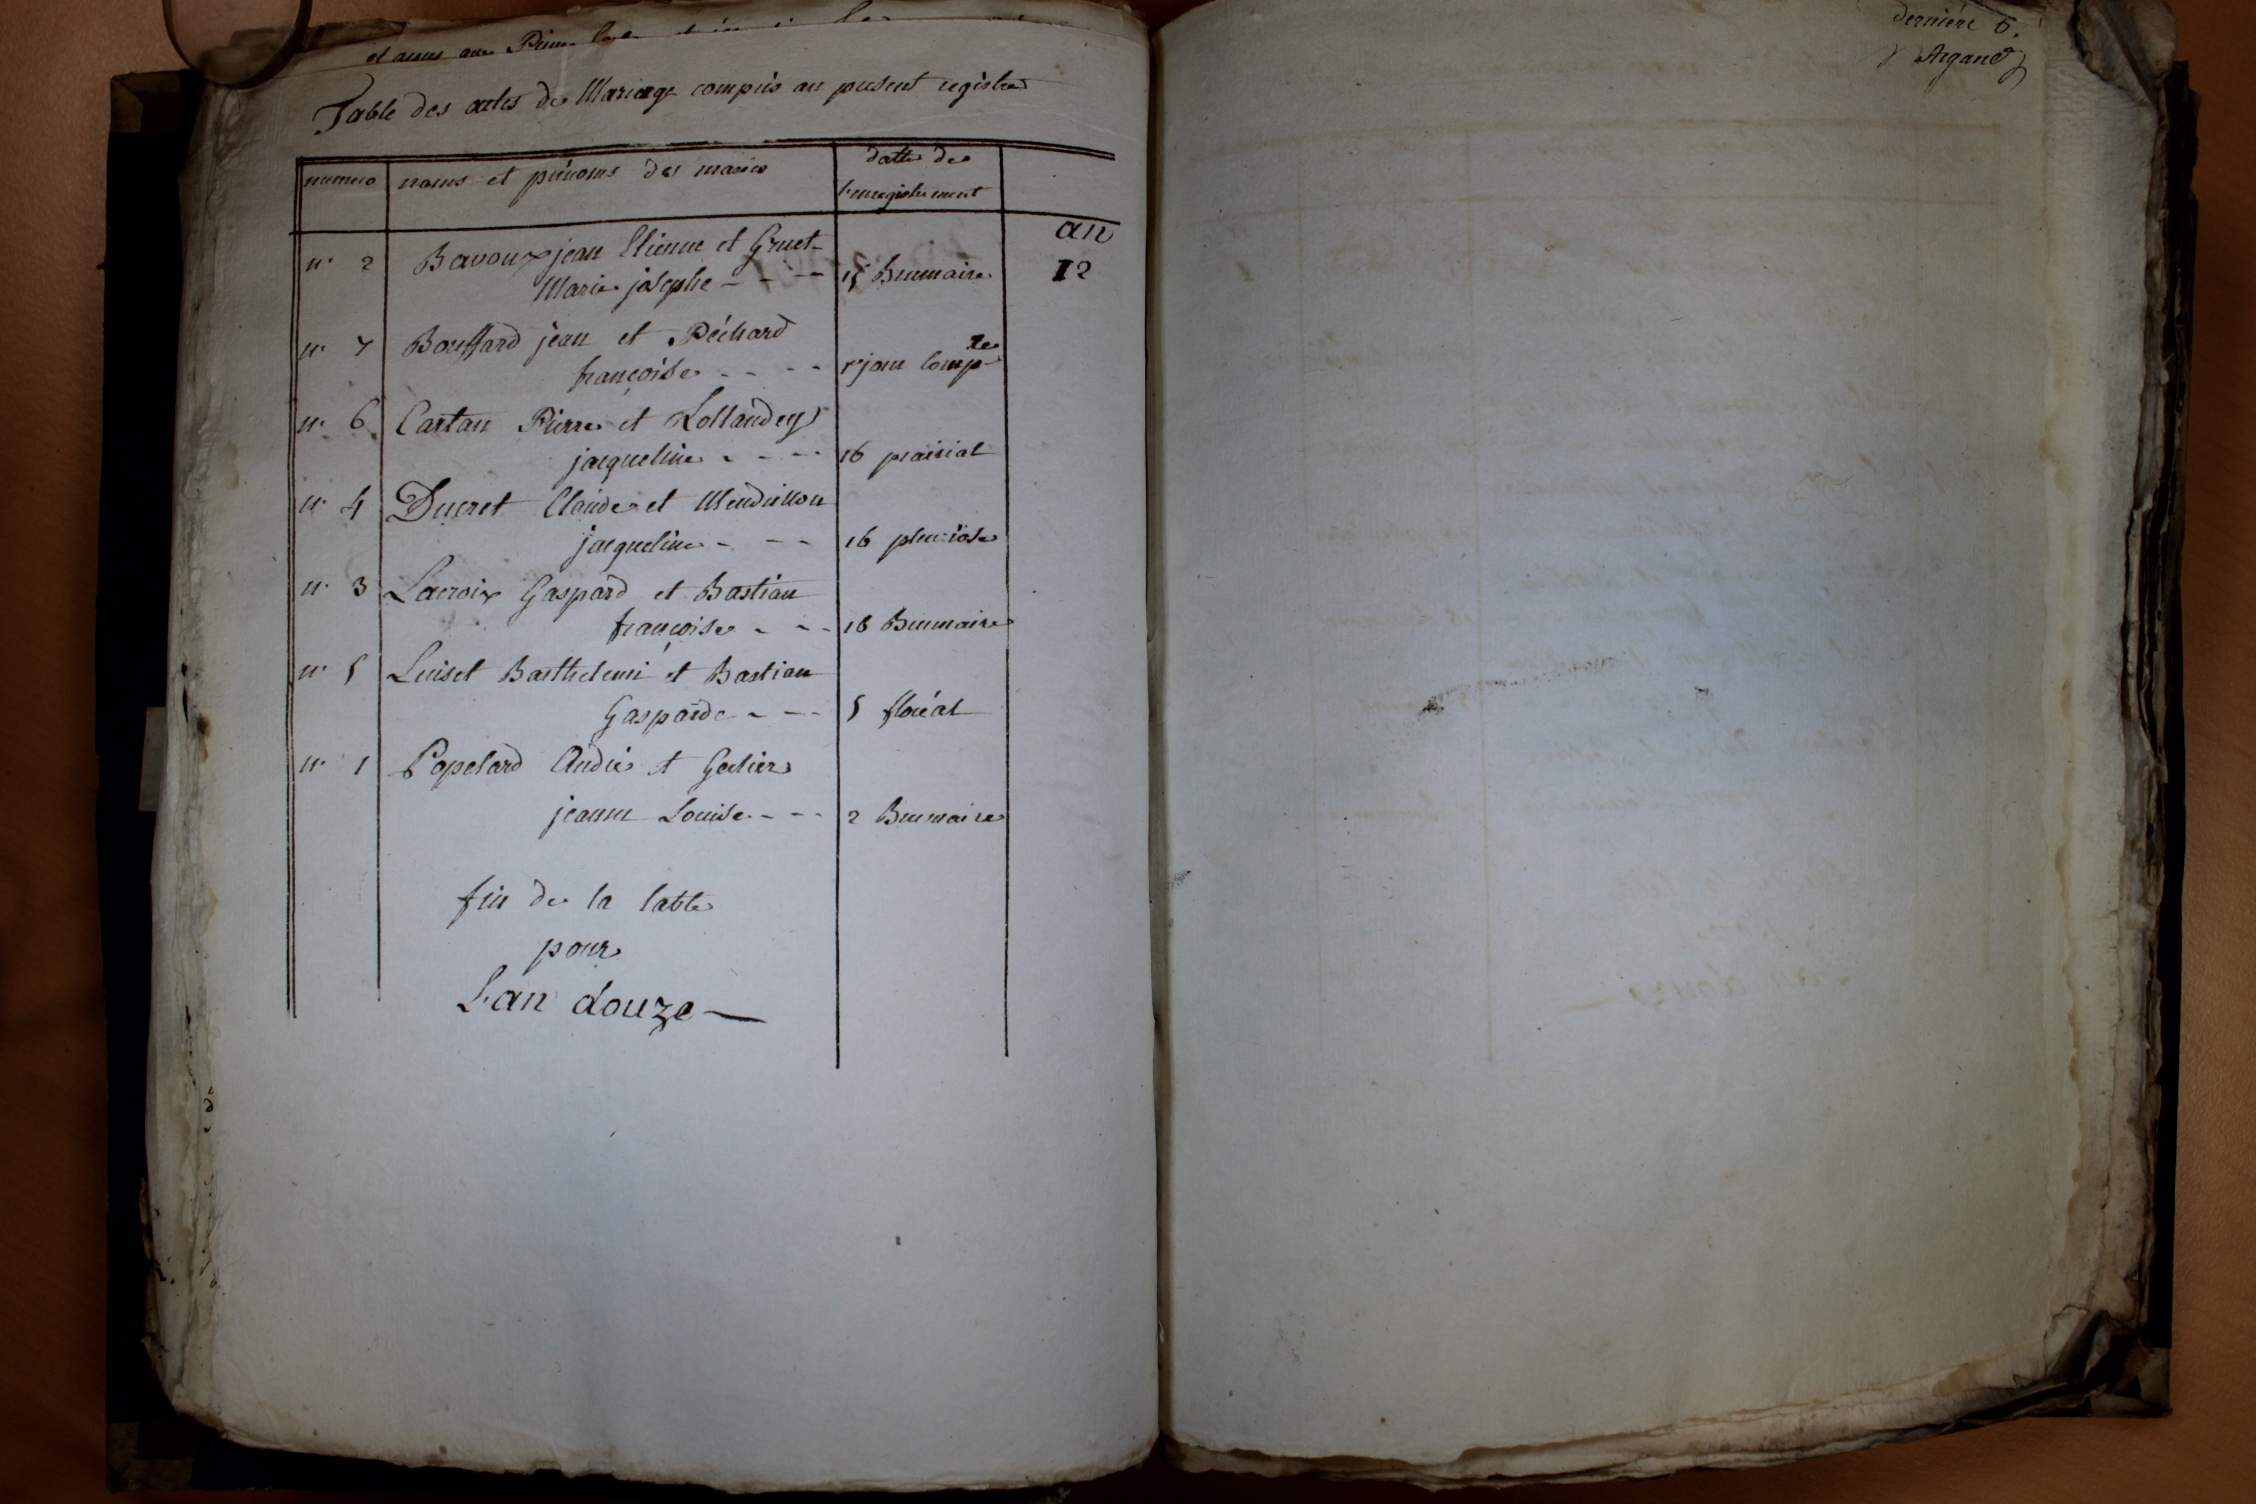 et
Table des actes de Mariage compris au present registre
numero noms et prénoms des mariés datte de
l'enregistrement
an
n° 2 Bavoux jean Etienne et Gruet
Marie josephe - - - 15 Brumaire 12
n° 7 Bouffard jean et Péchard
françoise - - - - 1er jour compre
n° 6 Cartan Pierre et Lollandey
jacqueline - - - - 16 prairial
n° 4 Ducret Claude et Mendrillon
jacqueline - - - 16 pluviose
n° 3 Lacroix Gaspard et Bastian
françoise - - - 18 Brumaire
n° 5 Luiset Barthelemi et Bastian
Gasparde - - - 5 floréal
n° 1 Popelard André et Golier
jeanne Louise - - - 2 Brumaire
fin de la table
pour
L'an douze
derniére 6.